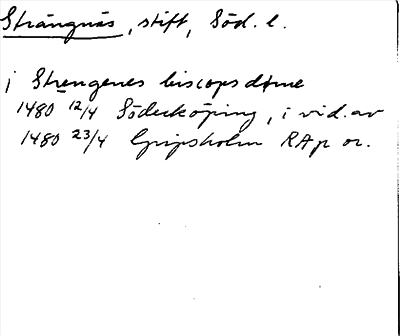 Strängnäs, stift, Söd. l.
j Strengenes biscopsdøme
1480 12/4 Söderköping, i vid. av
1480 23/4 Gripsholm RAp or.